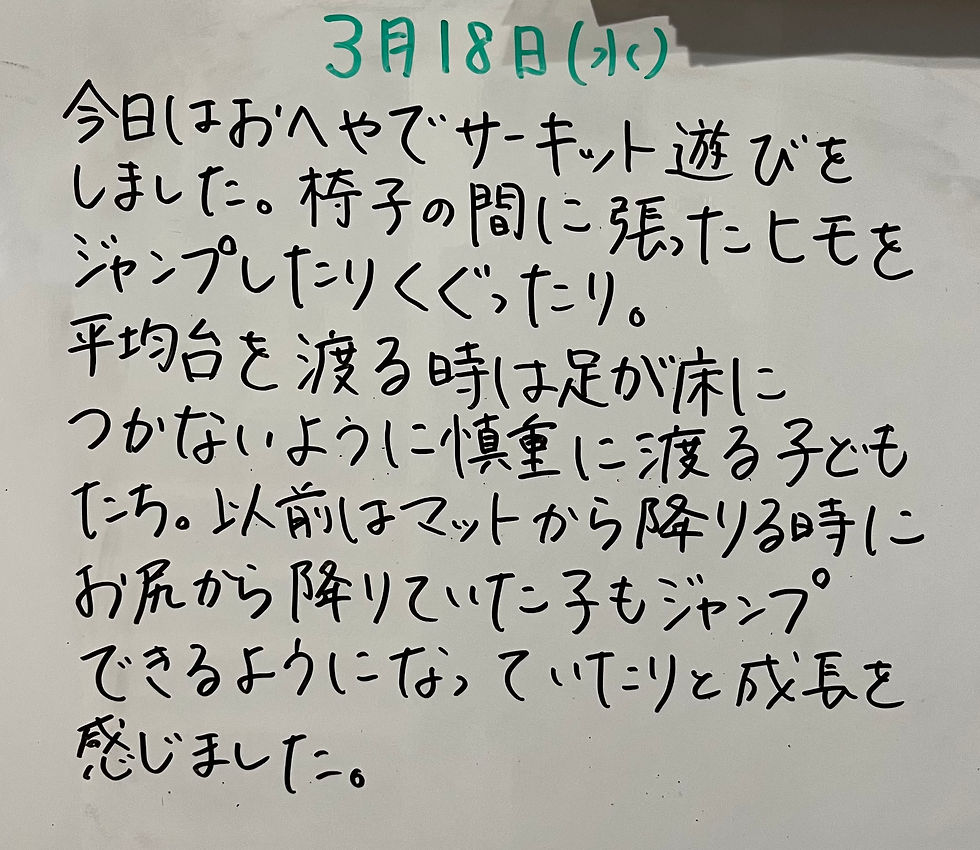 3月18日(水)
今日はおへやでサーキット遊びを
しました。椅子の間に張ったヒモを
ジャンプしたりくぐったり。
平均台を渡る時は足が床に
つかないように慎重に渡る子ども
たち。以前はマットから降りる時に
お尻から降りていた子もジャンプ
できるようになっていたりと成長を
感じました。